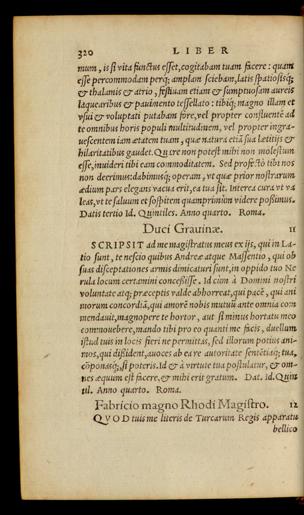 320 LIBER
mum, is si vita functus esset, cogitabam tuam facere: quam
esse percommodam perq́; amplam sciebam, latis spatiosisq́;
& thalamis & atrio, festiuam etiam & sumptuosam aureis
laquearibus & pauimento tessellato: tibiq́; magno illam et
vsui & voluptati putabam fore, vel propter confluentē ad
te omnibus horis populi multitudinem, vel propter ingra-
uescentem iam ætatem tuam, quæ natura etiā sua lætitijs &
hilaritatibus gaudet. Qua re non potest mihi non molestum
esse, inuideri tibi eam commoditatem. Sed profectò tibi nos
non deerimus: dabimusq́; operam, vt quæ prior nostrarum
ædium pars elegans vacua erit, ea tua sit. Interea cura vt va
leas, vt te saluum et sospitem quamprimùm videre possimus.
Datis tertio Id. Quintiles. Anno quarto. Roma.
Duci Grauinæ. 11
SCRIPSIT ad me magistratus meus ex ijs, qui in La-
tio sunt, te nescio quibus Andreæ atque Massentio, qui ob
suas disceptationes armis dimicaturi sunt, in oppido tuo Ne
rula locum certamini concessisse. Id cùm à Domini nostri
voluntate atq́; præceptis valde abhorreat, qui pacē, qui ani
morum concordiā, qui amorē nobis mutuū ante omnia com
mendauit, magnopere te hortor, aut si minus hortatu meo
commouebere, mando tibi pro eo quanti me facis, duellum
istud tuis in locis fieri ne permittas, sed illorum potius ani-
mos, qui dissident, auoces ab ea re autoritate sentētiaq́; tua,
cōponasq́;, si poteris. Id & à virtute tua postulatur, & om-
nes æquum est facere, & mihi erit gratum. Dat. Id. Quin
til. Anno quarto. Roma.
Fabricio magno Rhodi Magistro. 12
QVOD tuis me literis de Turcarum Regis apparatu
bellico